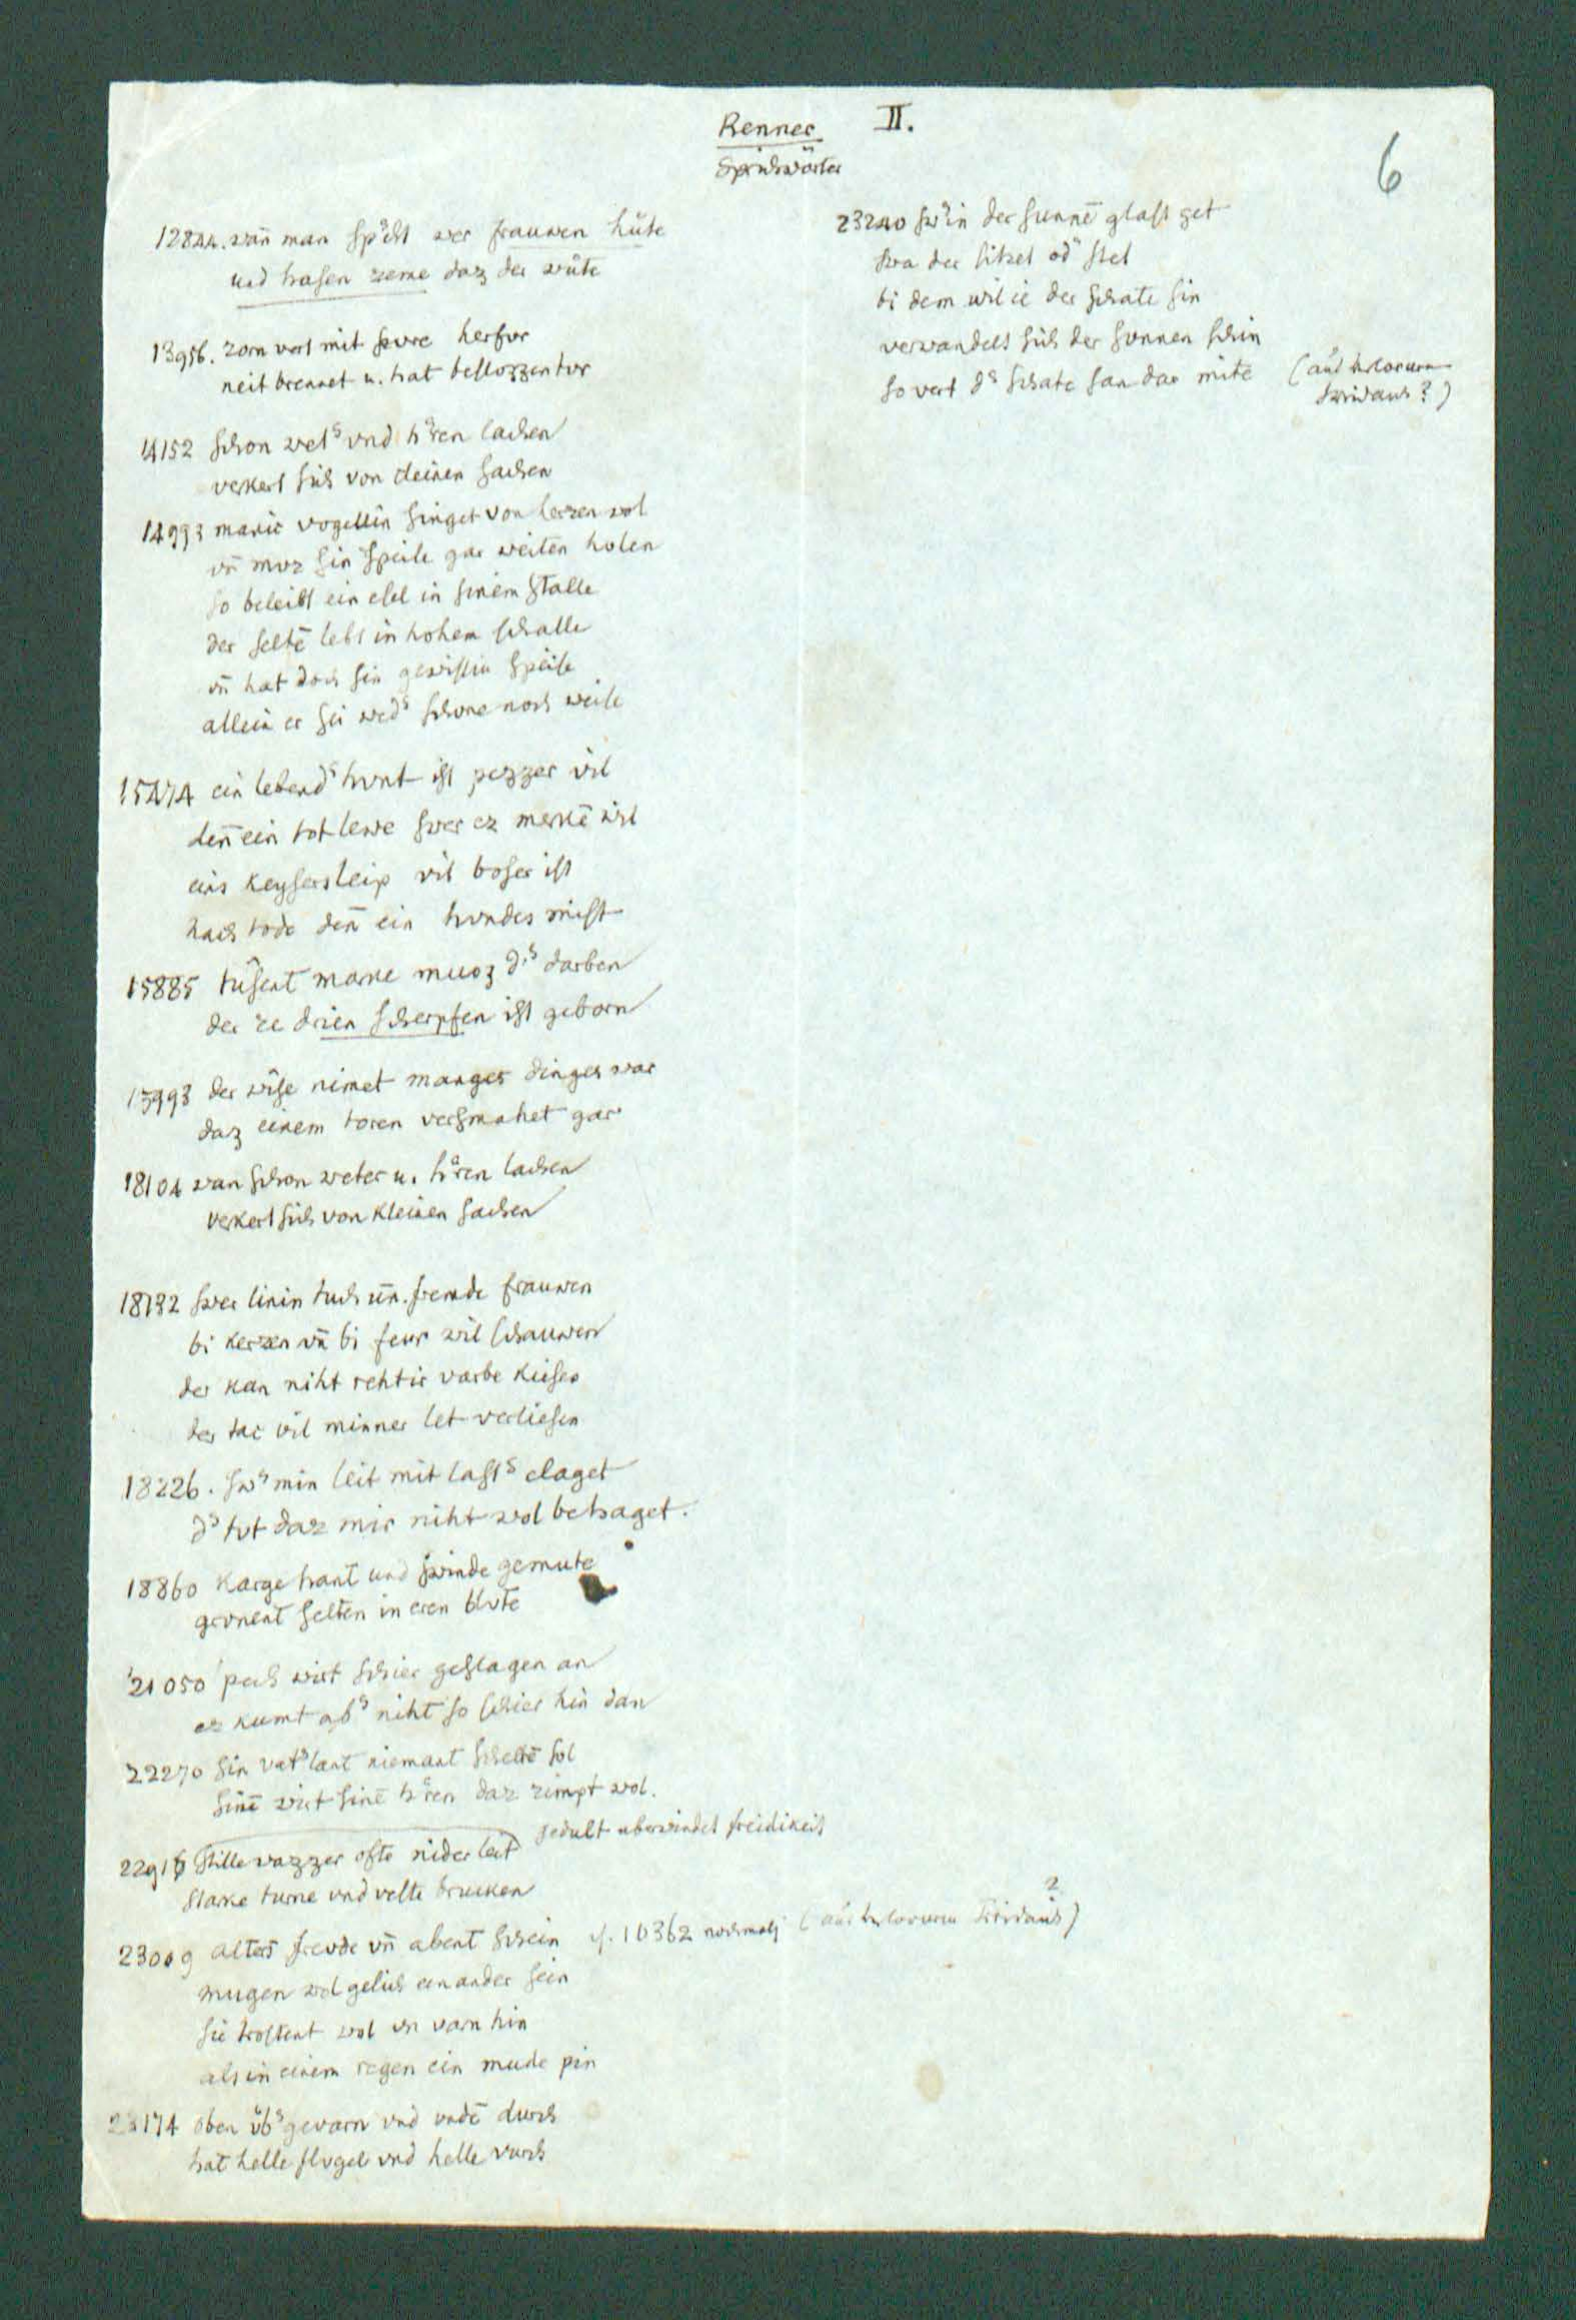 Renner II.
Sprichwörter
6
12844. wañ man spͥcht wer frauwen hüte
und hasen zeme daz der wüte
13956. zorn vert mit fivre herfur
neit brennet u. hat beslozzen tvr
14152 schon wetˢ vnd hˢren lachen
verkert sich von cleinen sachen
14993 manic vogellin singet von herzen wol
vñ mvz sin speise gar weiten holen
so beleibt ein esel in sinem stalle
der seltē lebt in hohem schalle
vñ hat doch sin gewissiu speise
allein er sei wedˢ schone noch weise
15474 ein lebendˢ hvnt ist pezzer vil
deñ ein tot lewe swer ez merkē wil
eins keysers leip vil boser ist
nach tode deñ ein hvndes mist
15885 tûsent marke muoz dˢ darben
der ze drien scherpfen ist geborn
15993 der wîse nimet manges dinges war
daz einem toren versmahet gar
18104 wan schon weter u. hˢren lachen
verkert sich von kleinen sachen
18132 swer linin tuch uñ. fremde frauwen
bi kerzen vñ bi feur wil schauwen
der kan niht rehtir varbe kiesen
der tac vil minner let verliesen
18226. swˢ min leit mit lastˢ claget
dˢ tvt daz mir niht wol behaget.
18860 Karge hant und swinde gemute
grvnent selten in eren blvte
21050 pech wirt schier geslagen an
ez kumt abˢ niht so schier hin dan
22270 sin vatˢlant niemant scheltē sol
sinē wirt sinē hˢren daz zimpt wol.
gedult uberwindet freidikeit
22916 stille wazzer ofte nider leit
starke turne vnd veste brucken
23009 alters frevde vñ abent schein cf. 10362 nochmals
mugen wol gelich einander sein
sie trostent wol vn varn hin
als in einem regen ein mude pin
23174 oben v̈bˢ gevarn vnd vndē durch
hat helle flvgel vnd helle vurch
23240 swˢ in der sunnē glast get
swa der sitzet odˢ stet
bi dem wil ie der schate sin
verwandelt sich der sunnen schin
so vert dˢ schate san dar mite